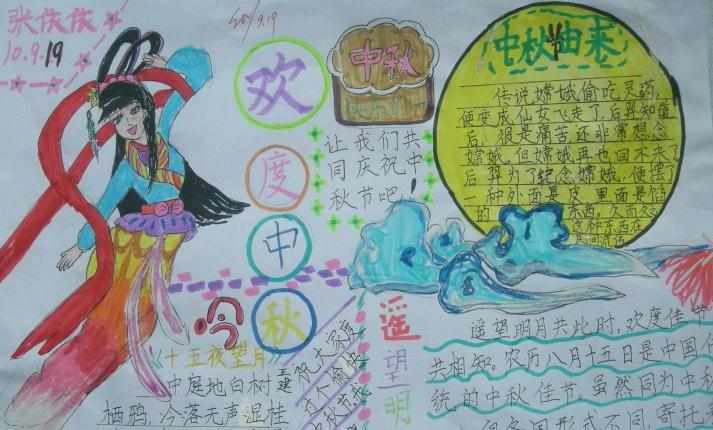 张依依
10.9.19
欢
度
中
秋
中秋
让我们共
同庆祝中
秋节吧!
中秋由来
传说嫦娥偷吃灵药,
便变成仙女飞走了,后羿知道
后,很是痛苦还非常想念
嫦娥。但嫦娥再也回不来了
后羿为了纪念嫦娥,便摆了
一种外面是皮,里面是馅
的东西,久而久之
这种东西在
吟
《十五夜望月》
王建
中庭地白树
栖鸦,冷落无声湿桂
遥
望
明
遥望明月共此时,欢度佳节
共相知。农历八月十五日是中国传
统的中秋佳节,虽然同为中秋
但各国形式不同,寄托